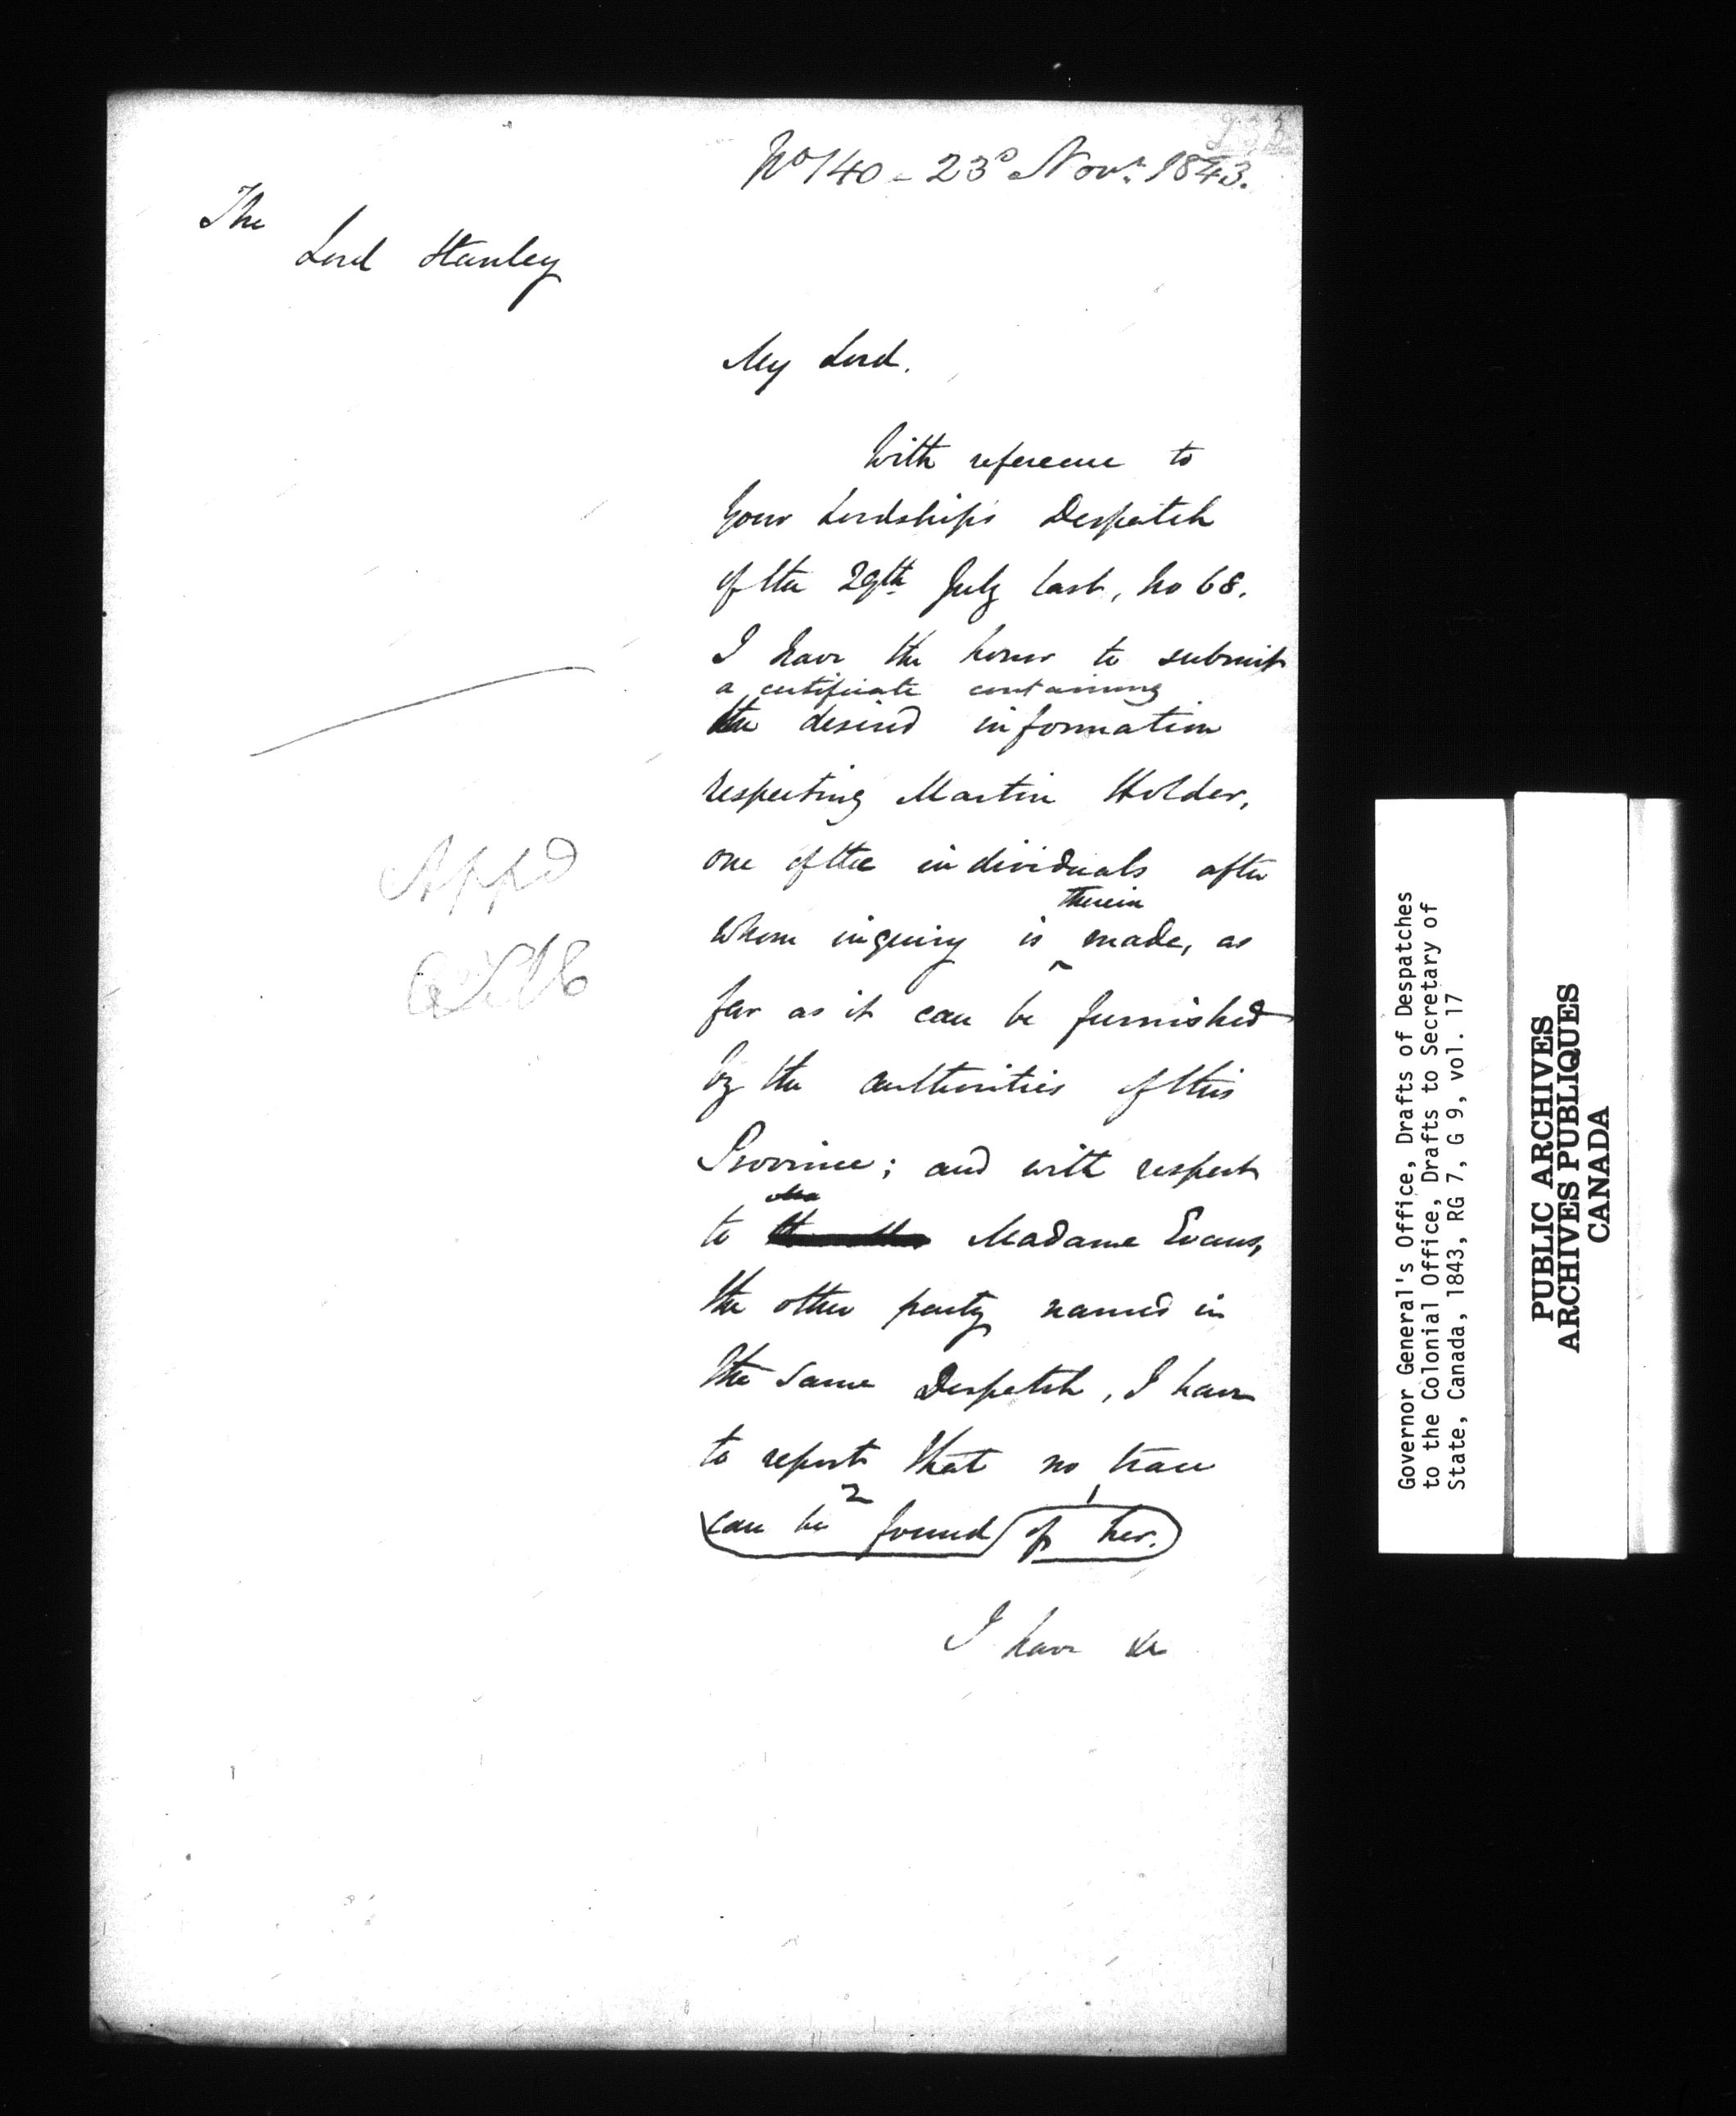 No 140 - 23d Novr. 1843.
The
Lord Stanley
My Lord.
With reference to
Your Lordship's Despatch
of the 29th July last, No 68.
I have the honor to submit
a certificate containing
the desired information
respecting Martin Holder,
one of the individuals after
therein
whom inquiry is ^ made, as
far as it can be furnished
by the authorities of this
Province; and with respect
to Madame Evans,
the other party named in
the same Despatch, I have
to report that no trace
2 1
can be found of her.
I have &c
Appd
Governor General's Office, Drafts of Despatches
to the Colonial Office, Drafts to Secretary of
State, Canada, 1843, RG 7, G 9, vol. 17
PUBLIC ARCHIVES
ARCHIVES PUBLIQUES
CANADA